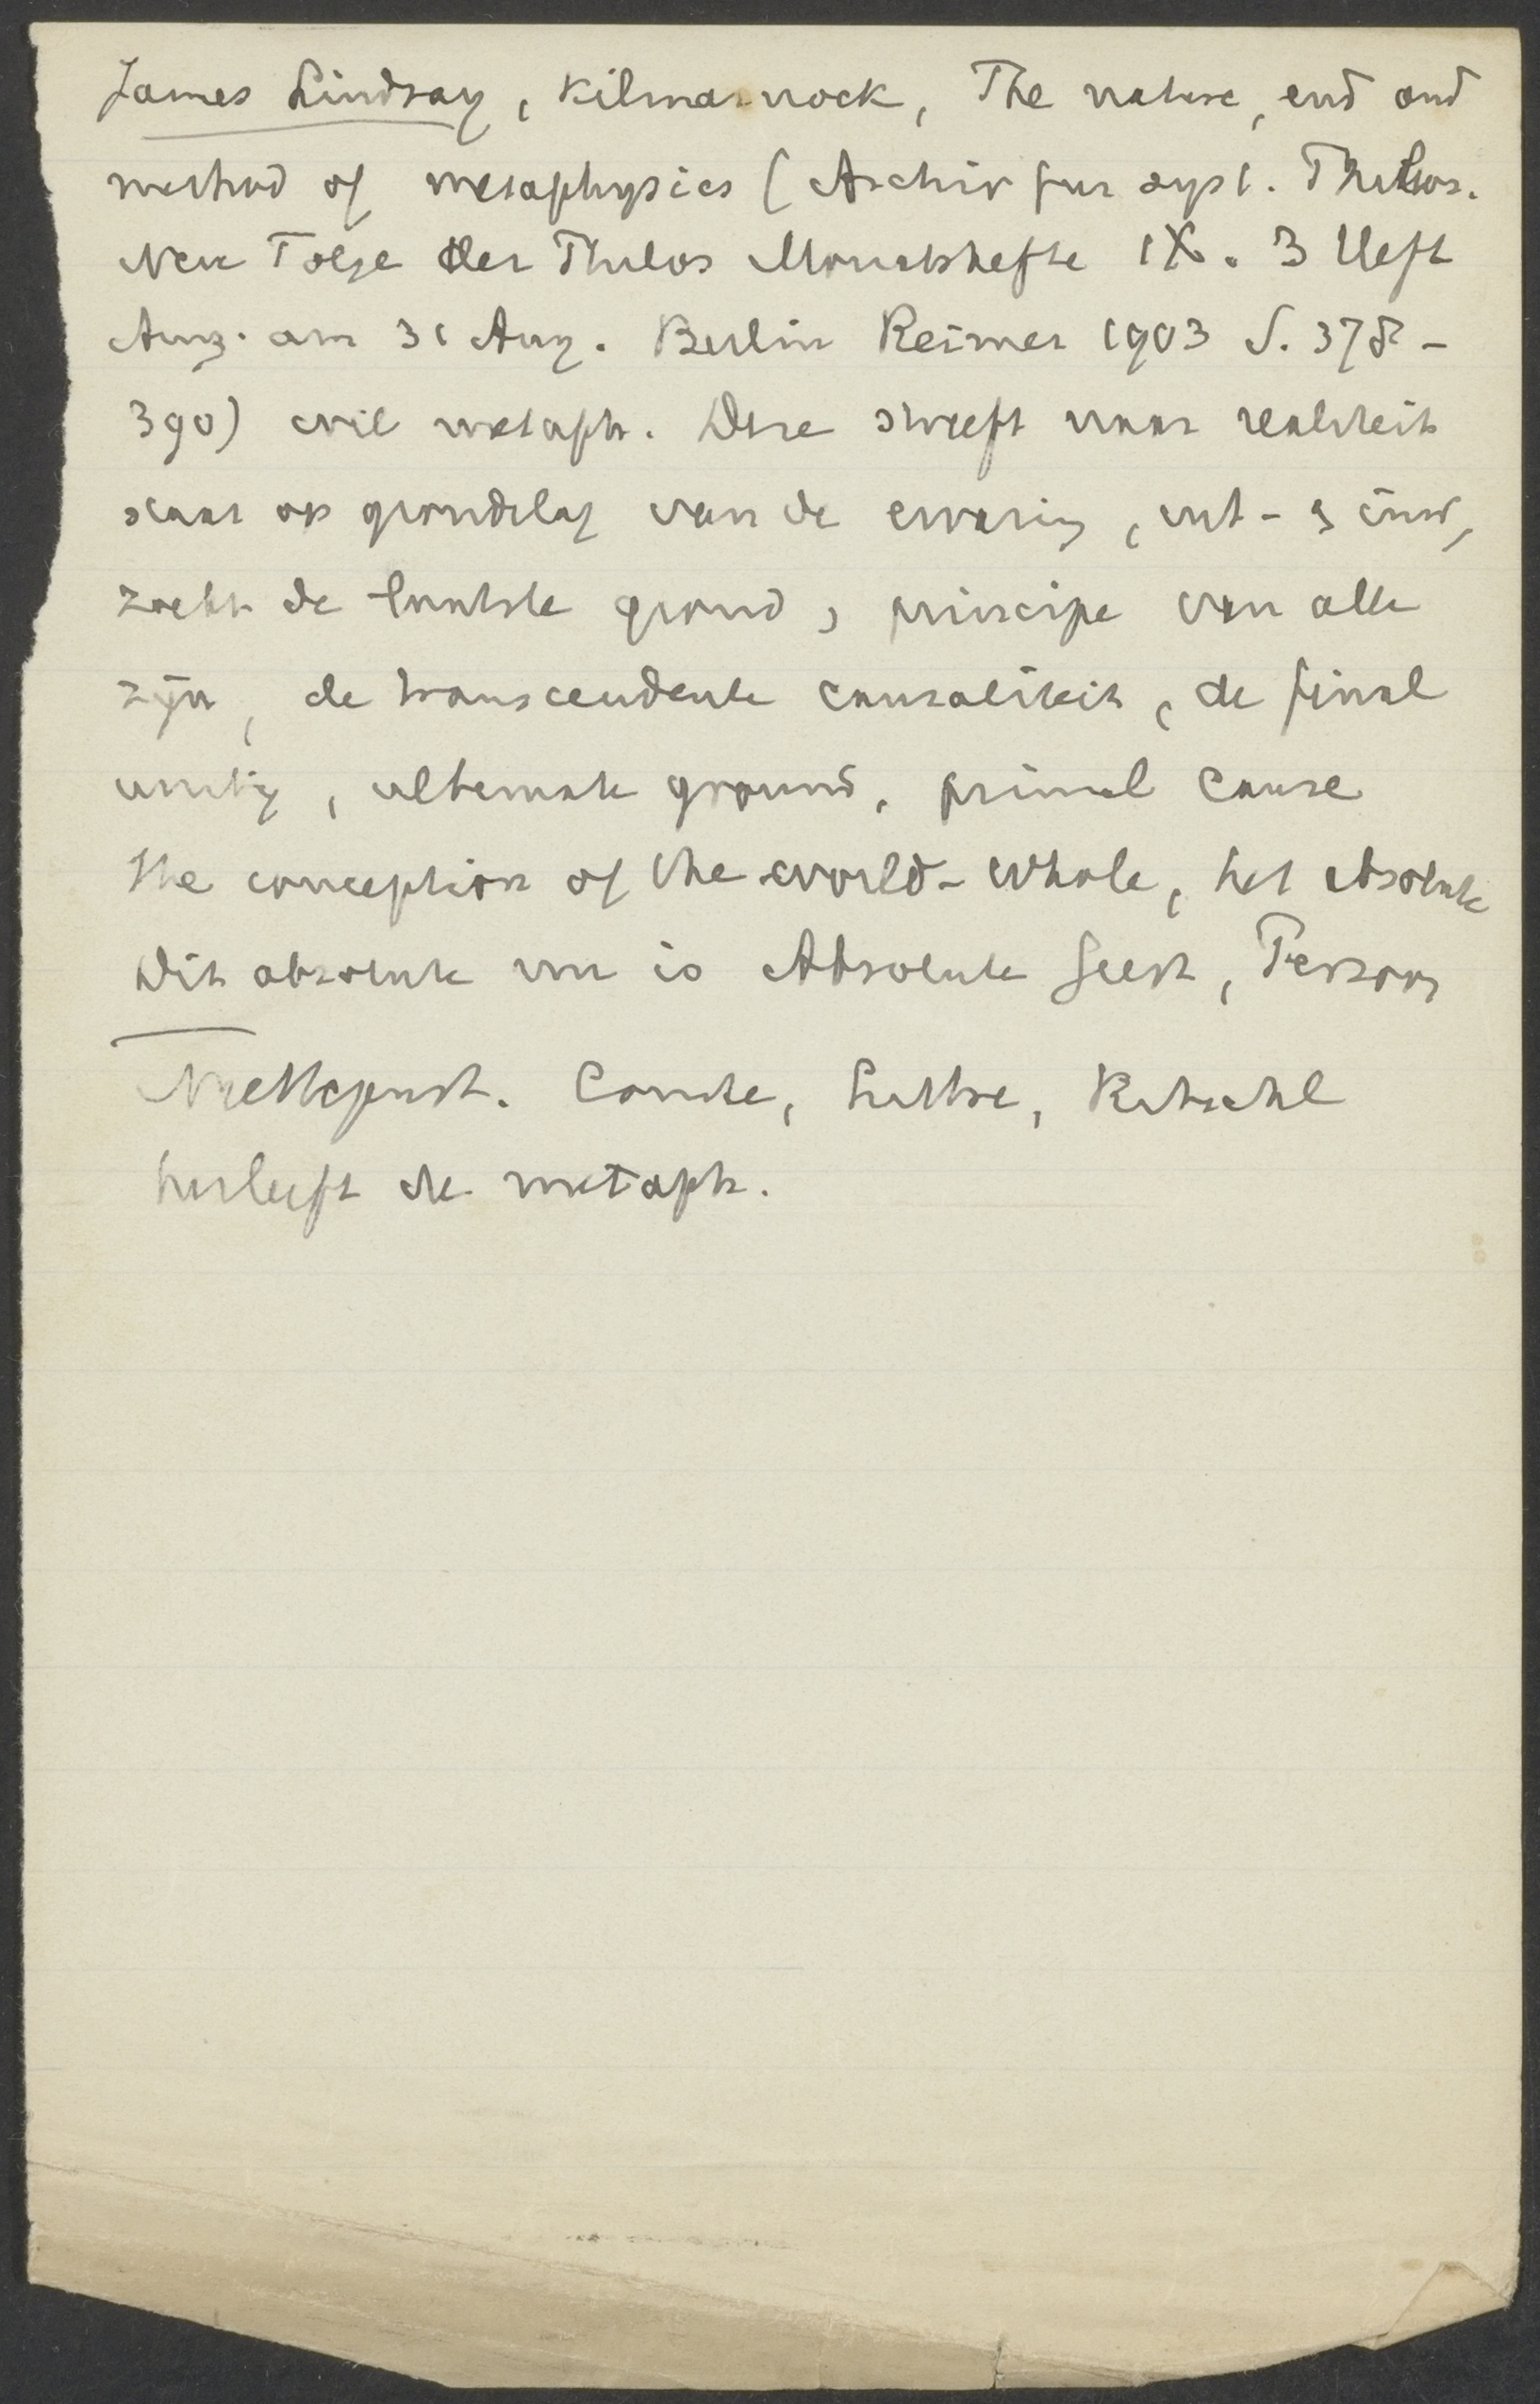 James Lindsay, Kilmarnock, The nature, end and
method of metaphysics (Archiv fur syst. Philos.
Neue Folge der Philos Monatshefte IX. 3 Heft
Ausg. am 31 Aug. Berlin Reimer 1903 S. 378-
390) wil metaph. Deze streeft naar realiteit
staat op grondslag van de ervaring, uit- & inw,
zoekt de laatste grond, principe van alle
zijn, de transcendente causaliteit, de final
unity, ultimate ground, primal cause
the conception of the world-whole, het absolute
Dit absolute nu is Absolute Geest, Persoon
Comte, Littre, Ritschl
herleeft de metaph.